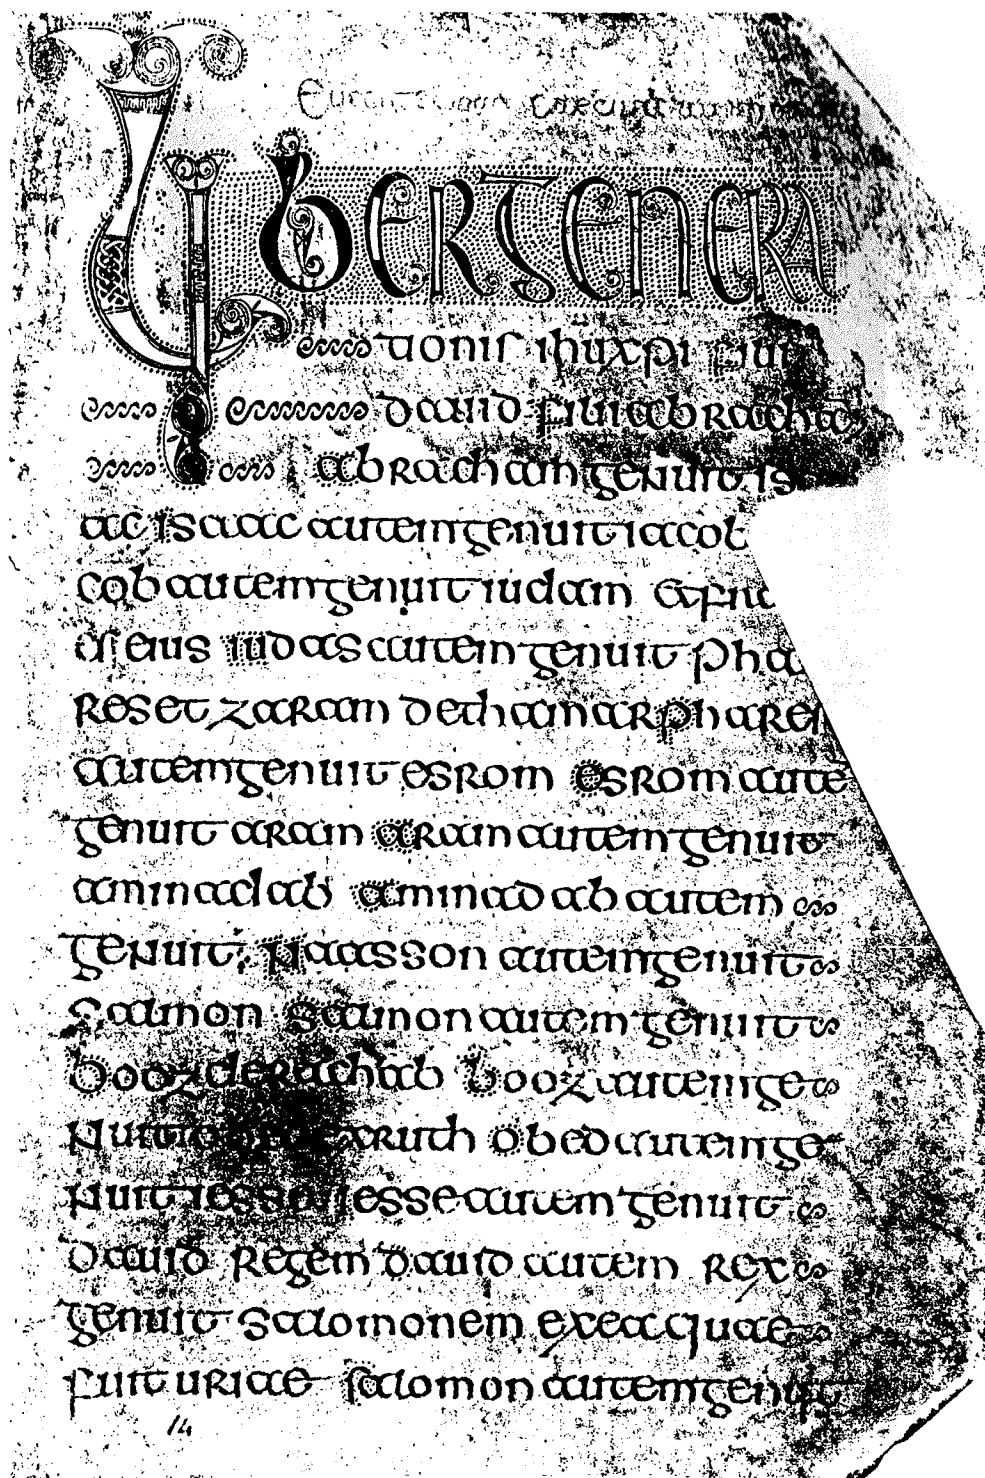 Liber genera
tionis ihu xpi filii
dauid filii abracham
abracham genuit is
ac isaac autem genuit iacob
cob autem genuit iudam et fra
es eius iudas autem genuit pha
res et zaram de thamar phares
autem genuit esrom esrom autē
genuit aram aram autem genuit
aminadab aminadab autem
genuit naasson autem genuit
salmon salmon autem genuit
booz de rachab booz autem ge
nuit ex ruth obed autem ge
nuit iesse iesse autem genuit
dauid regem dauid autem rex
genuit salomonem ex ea quae
fuit uriae salomon autem genuit
14